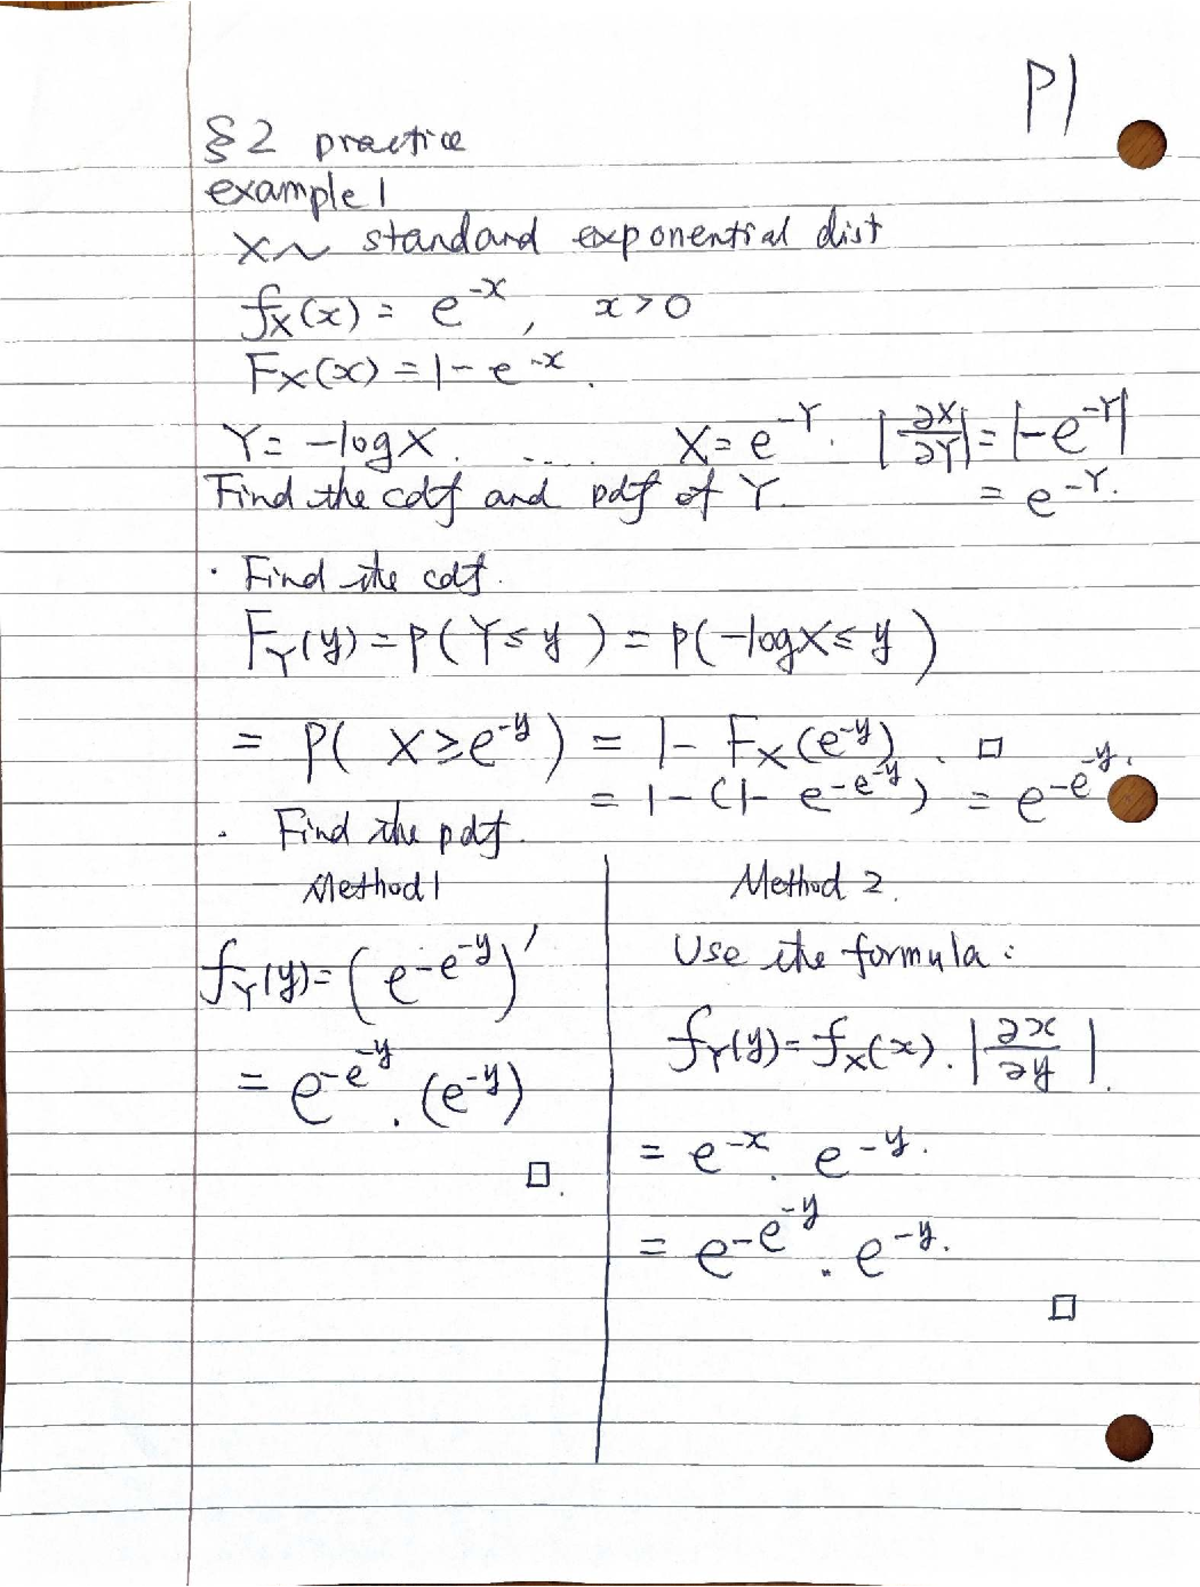 P1
§2 practice
example 1
X~ standard exponential dist
fX(x) = e^-x, x>0
FX(x) = 1-e^-x.
Y= -logX. .... X= e^-Y. |∂X/∂Y| = |-e^-Y|
Find the cdf and pdf of Y. = e^-Y.
· Find the cdf.
FY(y) = P(Y≤y) = P(-logX≤y)
= P( X≥e^-y) = 1- FX(e^-y). □
= 1-(1- e^-e^-y) = e^-e^-y.
· Find the pdf.
Method 1
fY(y)= (e^-e^-y)'
= e^-e^-y . (e^-y)
□.
Method 2.
Use the formula:
fY(y)= fX(x). |∂x/∂y|.
= e^-x. e^-y.
= e^-e^-y . e^-y.
□